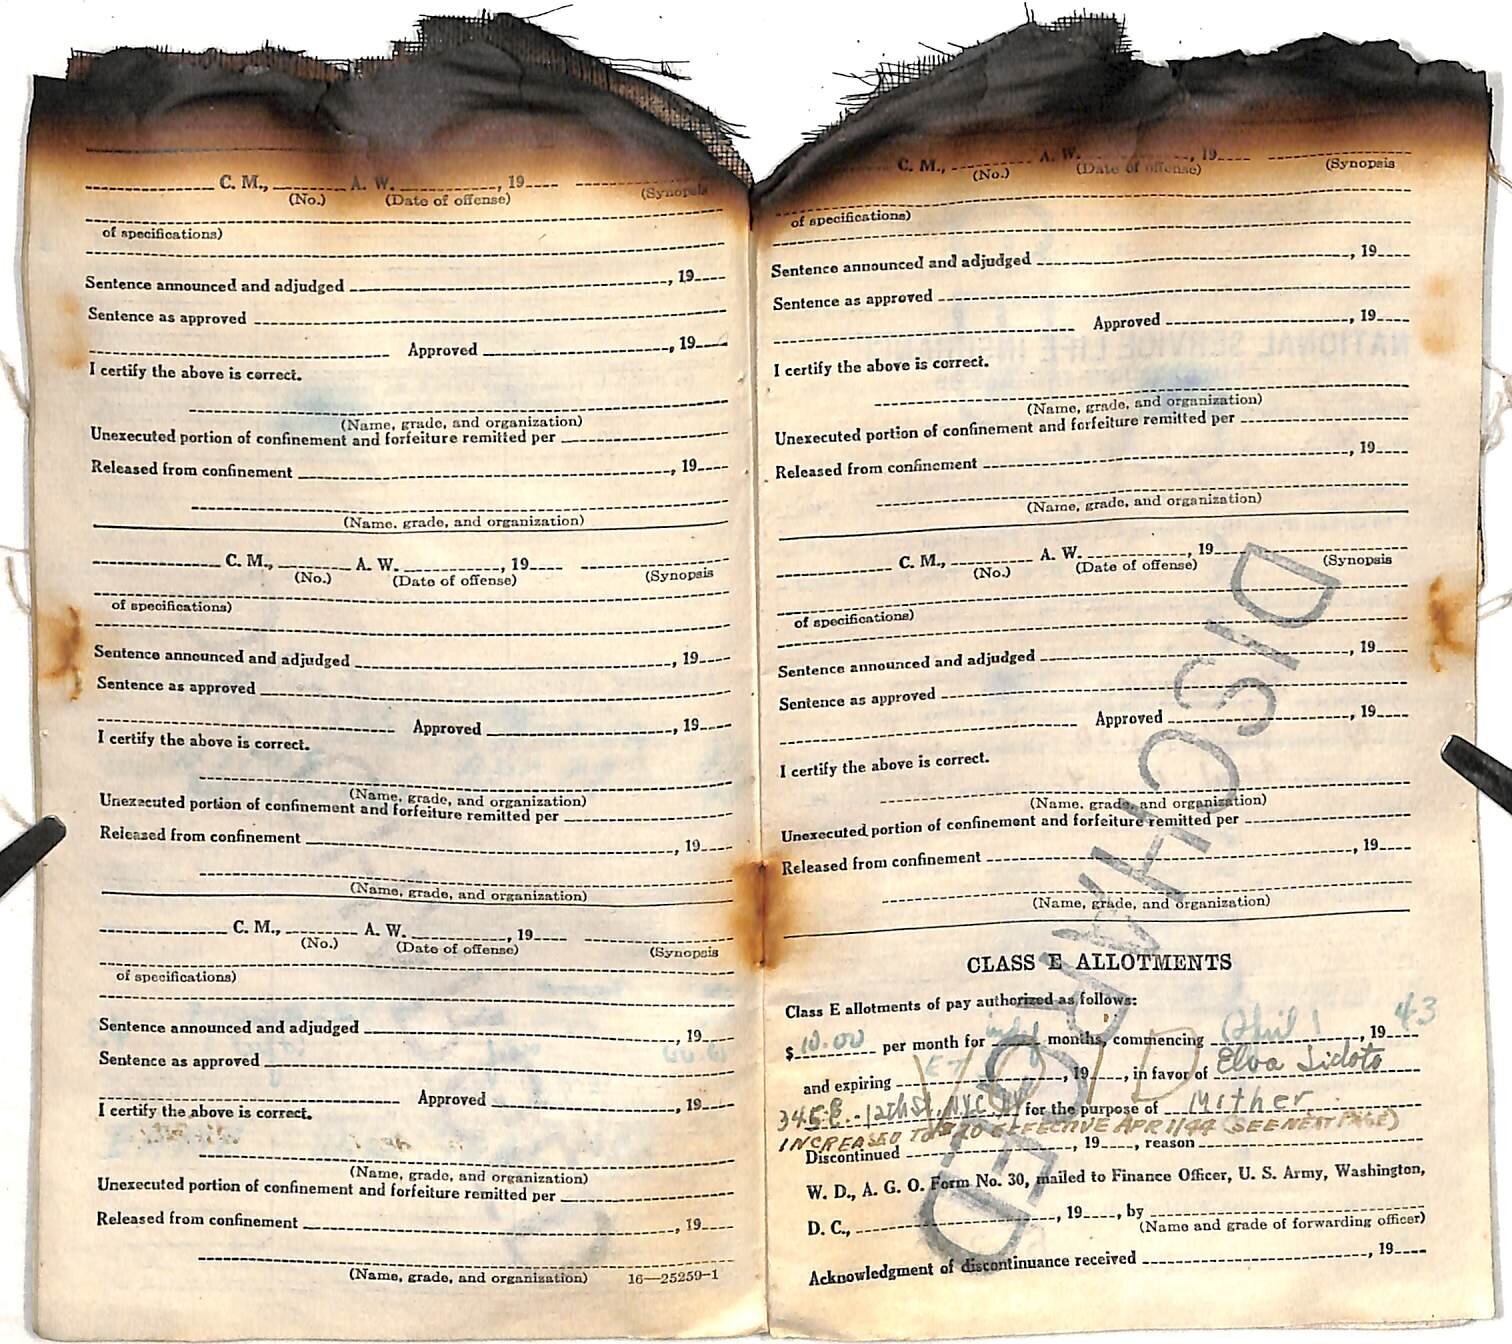 C. M., A. W. , 19
(No.) (Date of offense) (Synopsis
of specifications)
Sentence announced and adjudged , 19
Sentence as approved
Approved , 19
I certify the above is correct.
(Name, grade, and organization)
Unexecuted portion of confinement and forfeiture remitted per
Released from confinement , 19
(Name. grade, and organization)
C. M., A. W. , 19
(No.) (Date of offense) (Synopsis
of specifications)
Sentence announced and adjudged , 19
Sentence as approved
Approved , 19
I certify the above is correct.
(Name, grade, and organization)
Unexecuted portion of confinement and forfeiture remitted per
Released from confinement , 19
(Name, grade, and organization)
C. M., A. W. , 19
(No.) (Date of offense) (Synopsis
of specifications)
Sentence announced and adjudged , 19
Sentence as approved
Approved , 19
I certify the above is correct.
(Name, grade, and organization)
Unexecuted portion of confinement and forfeiture remitted per
Released from confinement , 19
(Name, grade, and organization) 16—25259-1
C. M., A. W. , 19
(No.) (Date of offense) (Synopsis
of specifications)
Sentence announced and adjudged , 19
Sentence as approved
Approved , 19
I certify the above is correct.
(Name, grade, and organization)
Unexecuted portion of confinement and forfeiture remitted per
Released from confinement , 19
(Name, grade, and organization)
C. M., A. W. , 19
(No.) (Date of offense) (Synopsis
of specifications)
Sentence announced and adjudged , 19
Sentence as approved
Approved , 19
I certify the above is correct.
(Name. grade, and organization)
Unexecuted portion of confinement and forfeiture remitted per
Released from confinement , 19
(Name, grade, and organization)
DISCHARGED
CLASS E ALLOTMENTS
Class E allotments of pay authorized as follows:
$ 10.00 per month for indef months, commencing April 1 , 19 43
and expiring , 19 , in favor of Elva Lidoto
VOID
345 E. 12th St. N.Y.C. NY for the purpose of Mother
INCREASED TO $20 EFFECTIVE APR 1/44 (SEE NEXT PAGE)
Discontinued , 19 , reason
W. D., A. G. O. Form No. 30, mailed to Finance Officer, U. S. Army, Washington,
D. C., , 19 , by
(Name and grade of forwarding officer)
Acknowledgment of discontinuance received , 19